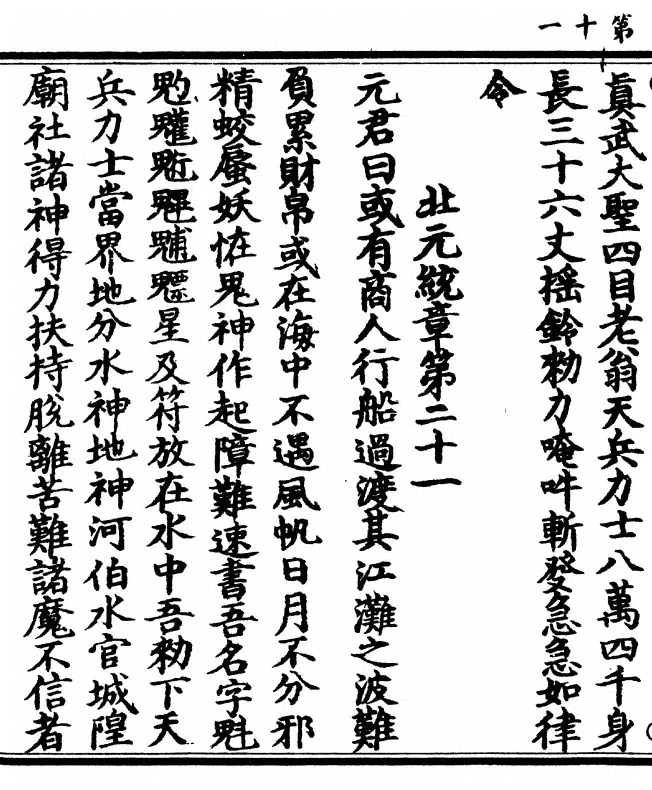 第十一
眞武大聖四目老翁天兵力士八萬四千身
長三十六丈搖鈴勑力唵吽斬發急急如律
令
北元統章第二十一
元君曰或有商人行船過渡其江灘之波難
負累財帛或在海中不遇風帆日月不分邪
精蛟蜃妖恠鬼神作起障難速書吾名字魁
星及符放在水中吾勑下天
兵力士當界地分水神地神河伯水官城隍
廟社諸神得力扶持脫離苦難諸魔不信者